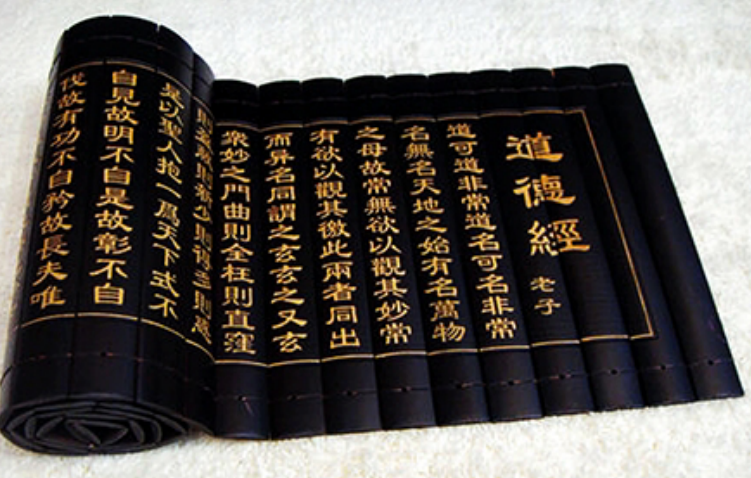 道德經
老子
道可道非常道名可名非常
名無名天地之始有名萬物
之母故常無欲以觀其妙常
有欲以觀其徼此兩者同出
而异名同謂之玄玄之又玄
衆妙之門曲則全枉則直窪
則盈敝則新少則得多則惑
是以聖人抱一爲天下式不
自見故明不自是故彰不自
伐故有功不自矜故長夫唯